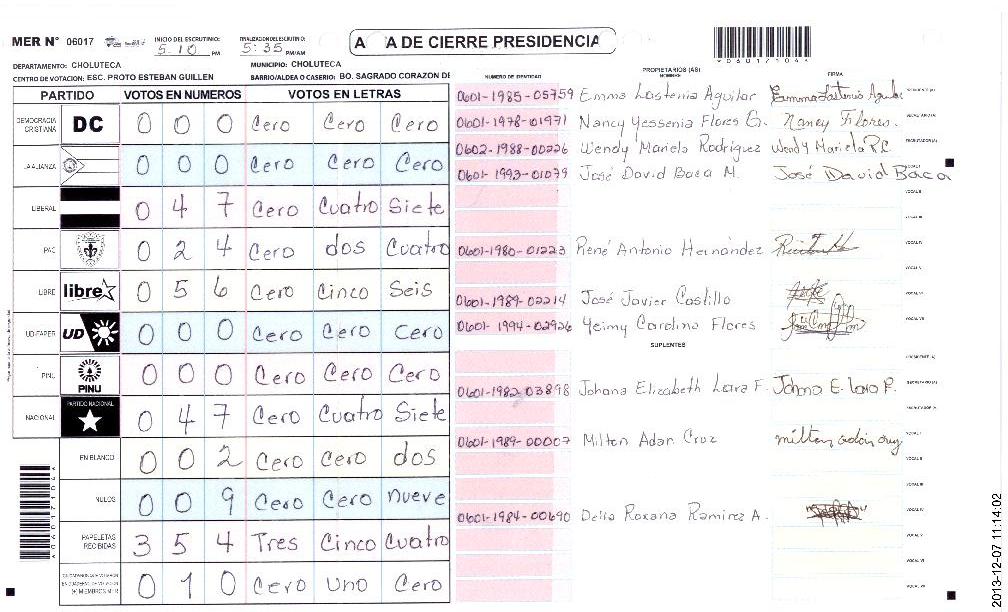 MER Nº 06017
INICIO DEL ESCRUTINIO: 5:10 PM
FINALIZACION DEL ESCRUTINIO: 5:35 PM/AM
A TA DE CIERRE PRESIDENCIA
DEPARTAMENTO: CHOLUTECA MUNICIPIO: CHOLUTECA
CENTRO DE VOTACION: ESC. PROTO ESTEBAN GUILLEN BARRIO/ALDEA O CASERIO: BO. SAGRADO CORAZON DE
*060171044*
PARTIDO VOTOS EN NUMEROS VOTOS EN LETRAS
DEMOCRACIA CRISTIANA DC 0 0 0 Cero Cero Cero
LA ALIANZA 0 0 0 Cero Cero Cero
LIBERAL 0 4 7 Cero Cuatro Siete
PAC 0 2 4 Cero dos Cuatro
LIBRE libre 0 5 6 Cero Cinco Seis
UD-FAPER UD 0 0 0 Cero Cero Cero
PINU PINU 0 0 0 Cero Cero Cero
NACIONAL PARTIDO NACIONAL 0 4 7 Cero Cuatro Siete
EN BLANCO 0 0 2 Cero Cero dos
NULOS 0 0 9 Cero Cero nueve
PAPELETAS RECIBIDAS 3 5 4 Tres Cinco Cuatro
0 1 0 Cero Uno Cero
PROPIETARIOS (AS)
NUMERO DE IDENTIDAD NOMBRE FIRMA
0601-1985-05759 Emma Lastenia Aguilar Emma Lastenia Aguilar
0601-1978-01971 Nancy Yessenia Flores G. Nancy Flores.
0602-1988-00226 Wendy Mariela Rodriguez Wendy Mariela R.
0601-1993-01079 José David Baca M. José David Baca
0601-1980-01223 René Antonio Hernández
0601-1989-02214 José Javier Castillo
0601-1994-02926 Yeimy Carolina Flores
SUPLENTES
0601-1982-03898 Johana Elizabeth Lara F. Johana E. Lara F.
0601-1989-00007 Milton Adan Cruz milton adán cruz
0601-1984-00690 Delia Roxana Ramirez A.
2013-12-07 11:14:02